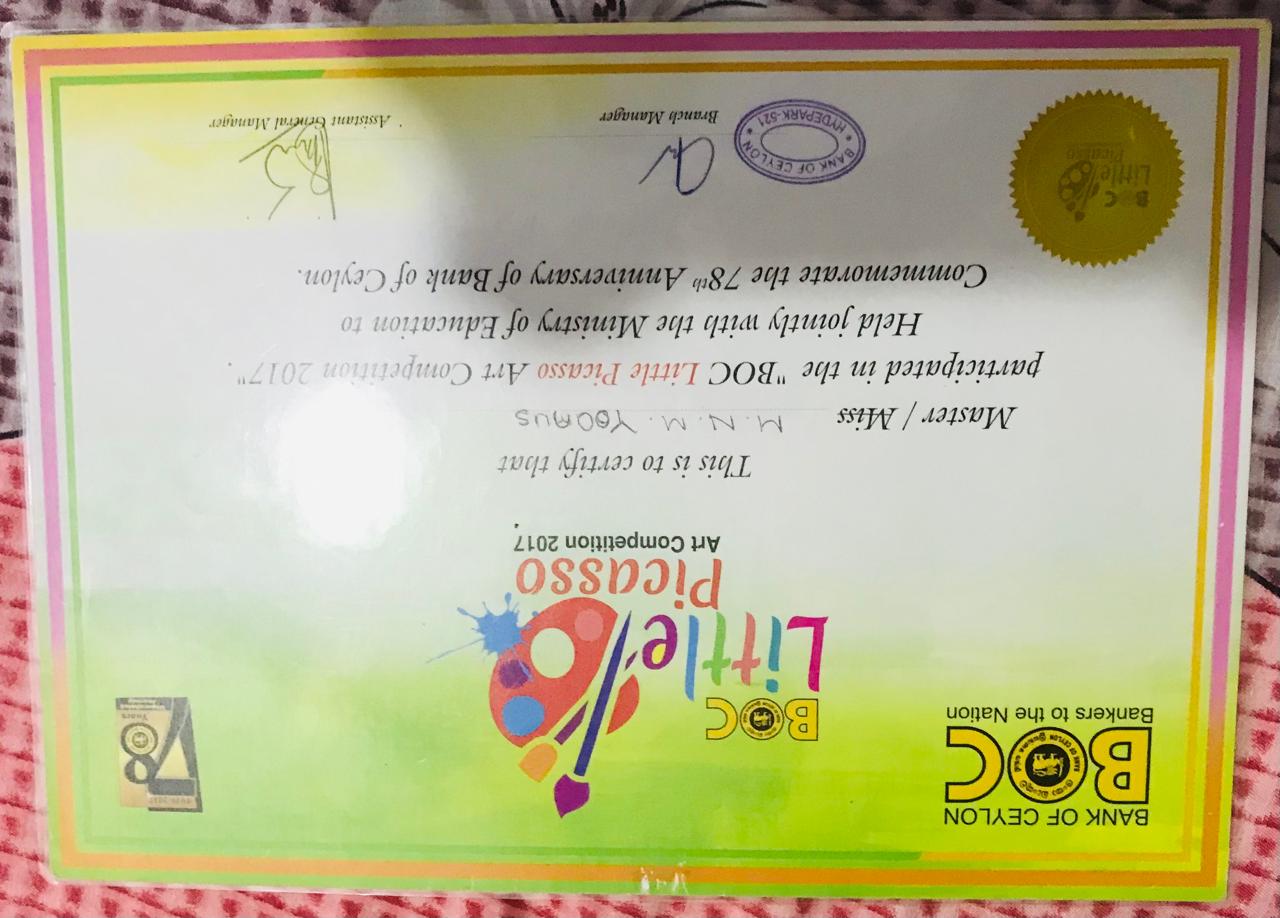 BANK OF CEYLON
BOC
Bankers to the Nation
78
Years
BOC
Little
Picasso
Art Competition 2017
This is to certify that
Master / Miss M. N. M.
participated in the "BOC Little Picasso Art Competition 2017".
Held jointly with the Ministry of Education to
Commemorate the 78th Anniversary of Bank of Ceylon.
BOC
Little
Picasso
BANK OF CEYLON
HYDEPARK-521
Branch Manager
Assistant General Manager